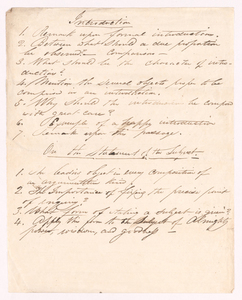 Introduction
1. Remark upon formal introduction.
2. Between what should a due proportion
be observed
3. What should be the character of intro-
duction?
4. Mention the several objects proper to be
comprised in an introduction.
5. Why should the introduction be composed
with great care?
6 Example of a happy introduction
7 Remark upon the passage.
On the Statement of the Subject
1. The leading object in every composition of
an argumentative kind
2. The Importance of fixing the precise point
of inquiry?
3. What form of stating a subject is given?
4. Apply this form to the subject of Almighty
power, wisdom, and goodness